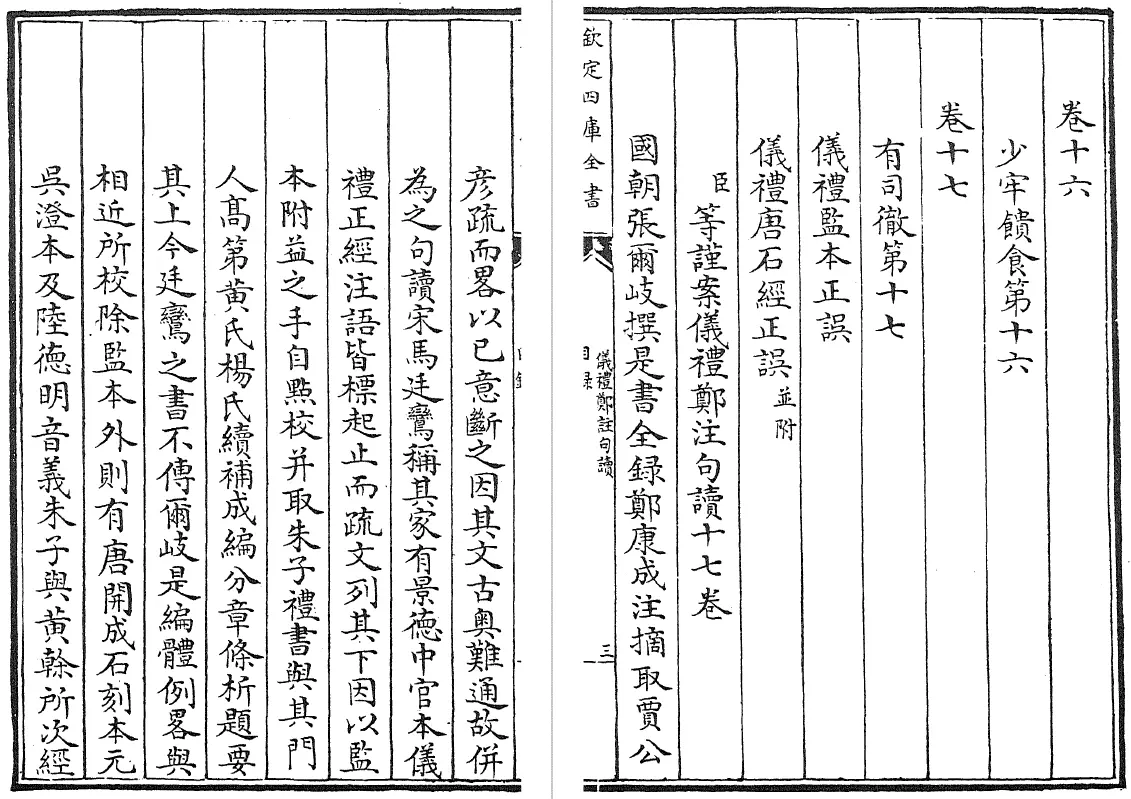 卷十六
少牢饋食第十六
卷十七
有司徹第十七
儀禮監本正誤
儀禮唐石經正誤並附
臣等謹案儀禮鄭注句讀十七卷
國朝張爾岐撰是書全録鄭康成注摘取賈公
欽定四庫全書
儀禮鄭註句讀
目録
三
彦疏而畧以已意斷之因其文古奥難通故併
為之句讀宋馬廷鸞稱其家有景徳中官本儀
禮正經注語皆標起止而疏文列其下因以監
本附益之手自㸃校并取朱子禮書與其門
人髙第黄氏楊氏續補成編分章條析題要
其上今廷鸞之書不傳爾岐是編體例畧與
相近所校除監本外則有唐開成石刻本元
吳澄本及陸徳明音義朱子與黄榦所次經